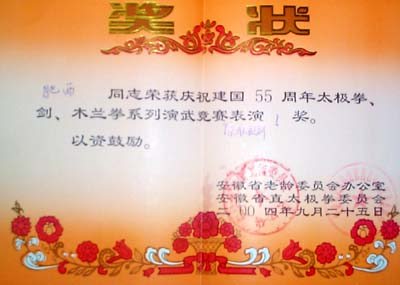 奖状
肥西 同志荣获庆祝建国 55 周年太极拳、
剑、木兰拳系列演武竞赛表演 1 奖。
以资鼓励。
安徽省老龄委员会办公室
安徽省直太极拳委员会
二00四年九月二十五日